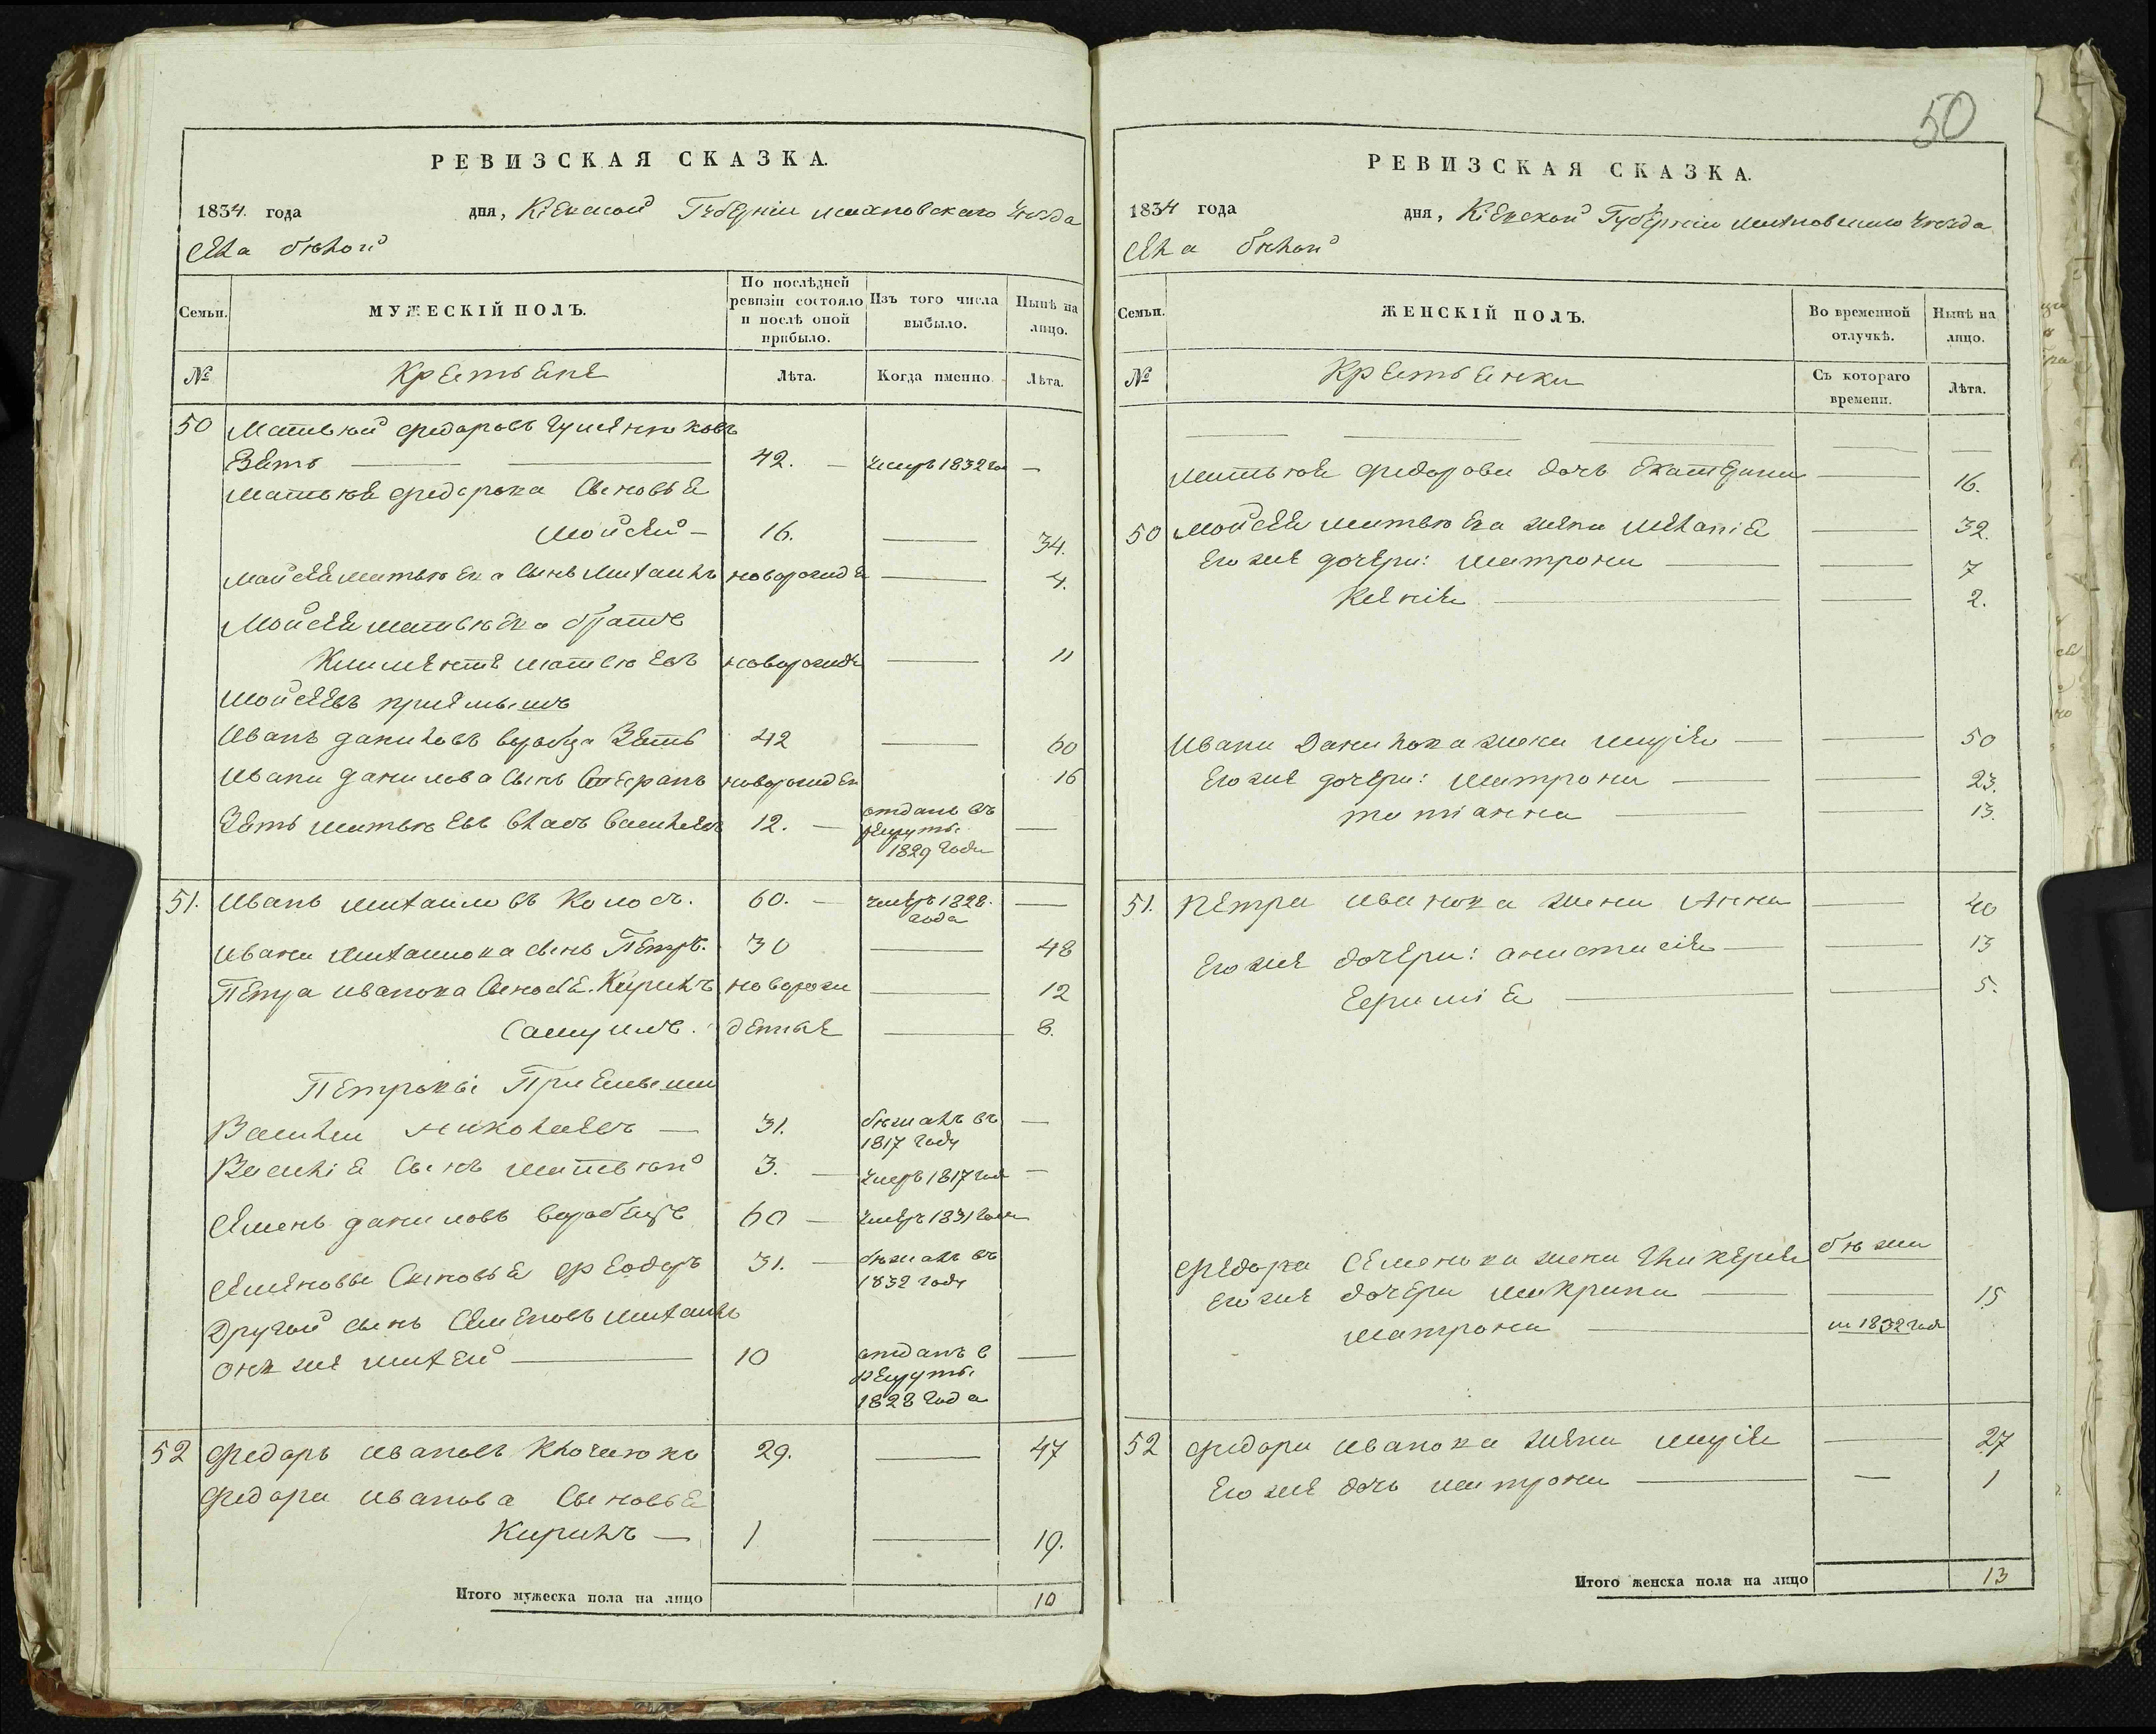 РЕВИЗСКАЯ СКАЗКА.
1834. года дня, Кіевской Губерніи Липовского Уѣзда
Села бѣлой
Семьи. МУЖЕСКІЙ ПОЛЪ. По послѣдней ревизіи состояло и послѣ оной прибыло. Изъ того числа выбыло. Нынѣ на лицо.
№ Крестьяне Лѣта. Когда именно. Лѣта.
50 Матвѣй Федоровъ
Зять — 42. — умеръ 1832 го —
Матвѣя Федорова Сыновья
Мойсей — 16. — 34.
Мойсея Матвѣева Сынъ Михаилъ новорожде — 4.
Мойсея Матвѣева братъ
Климентъ Матвѣевъ новорожд — 11
Мойсеевъ приемышъ
Иванъ Даниловъ Зять 42 — 60
Ивана Данилова Сынъ Стефанъ новорожден 16
Зять Матвѣевъ Власъ Васильевъ 12. — отданъ въ рекруты 1829 года —
51. Иванъ Михайловъ Колосъ. 60. — умеръ 1828. года —
Ивана Михайлова сынъ Петръ. 30 — 48
Петра Иванова Сыновья. Кирилъ новорож — 12
Самуилъ. денные — 8.
Петровы Приемыши
Василий Николаевъ — 31. бѣжалъ въ 1817 году —
Василія Сынъ Матвѣй 3. — умеръ 1817 года —
Семенъ Даниловъ 60 — умеръ 1831 года
Семеновы Сыновья Феодоръ 31. — бѣжалъ въ 1832 году
Другой сынъ Семеновъ Михаилъ
онъ же Михей — 10 отданъ в рекруты 1828 года —
52 Федоръ Ивановъ 29. — 47
Федора Иванова Сыновья
Кирилъ — 1 — 19.
Итого мужеска пола на лицо 10
50
РЕВИЗСКАЯ СКАЗКА.
1834 года дня, Кіевской Губерніи Липовского Уѣзда
Села бѣлой
Семьи. ЖЕНСКІЙ ПОЛЪ. Во временной отлучкѣ. Нынѣ на лицо.
№ Крестьянки Съ котораго времени. Лѣта.
Матвѣя Федорова дочь Екатерина — 16.
50 Мойсея Матвѣева жена Меланія — 32.
Его же дочери: Матрона — 7
Ксенія — 2.
Ивана Данилова жена Марія — 50
Его же дочери: Матрона — 23.
татіанна — 13.
51. Петра Иванова жена Анна — 40
Его же дочери: анастасія — 13
Ефимія — 5.
Федора Семенова жена Гликерія бѣжа
Его же дочери Макрина — 15
Матрона — 1832 года
52 Федора Иванова жена Марія — 27
Его же дочь Матрона — 1
Итого женска пола на лицо 13